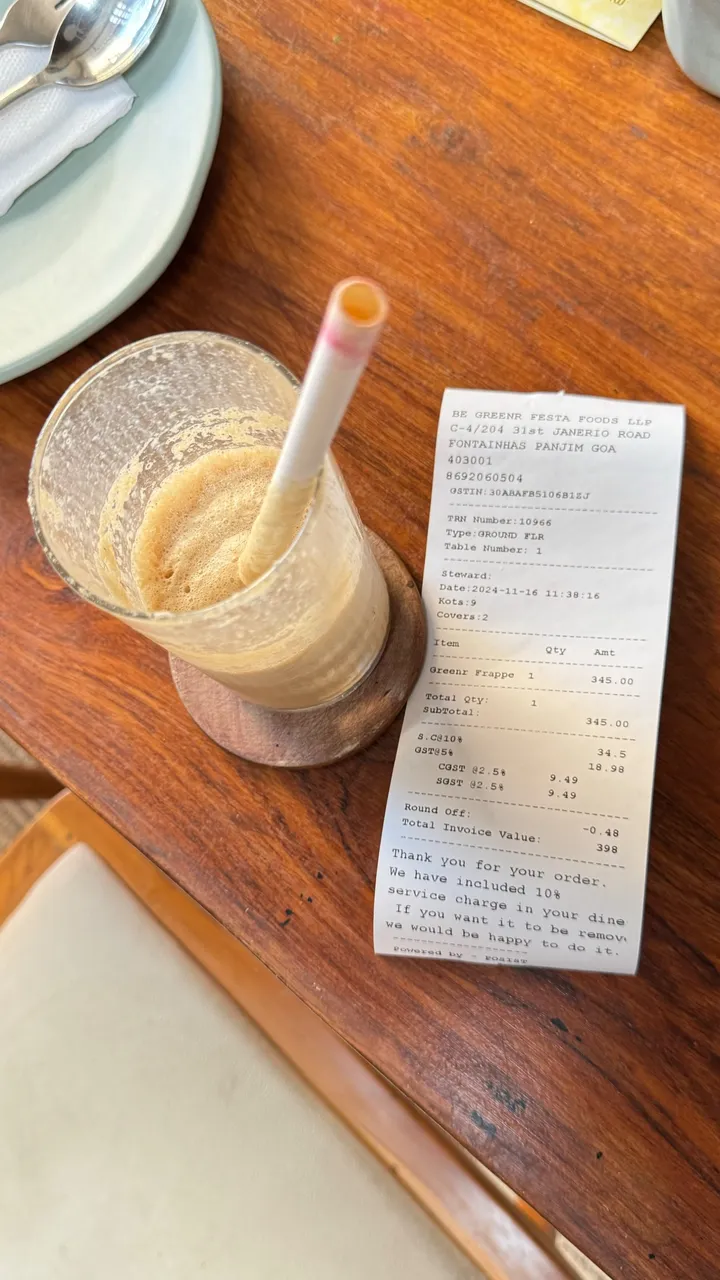 BE GREENR FESTA FOODS LLP
C-4/204 31st JANERIO ROAD
FONTAINHAS PANJIM GOA
403001
8692060504
GSTIN:30ABAFB5106B1ZJ
TRN Number:10966
Type:GROUND FLR
Table Number: 1
Steward:
Date:2024-11-16 11:38:16
Kots:9
Covers:2
Item Qty Amt
Greenr Frappe 1 345.00
Total Qty: 1
SubTotal: 345.00
S.C@10% 34.5
GST@5% 18.98
CGST @2.5% 9.49
SGST @2.5% 9.49
Round Off: -0.48
Total Invoice Value: 398
Thank you for your order.
We have included 10%
service charge in your dine
If you want it to be remov
we would be happy to do it.
powered by -